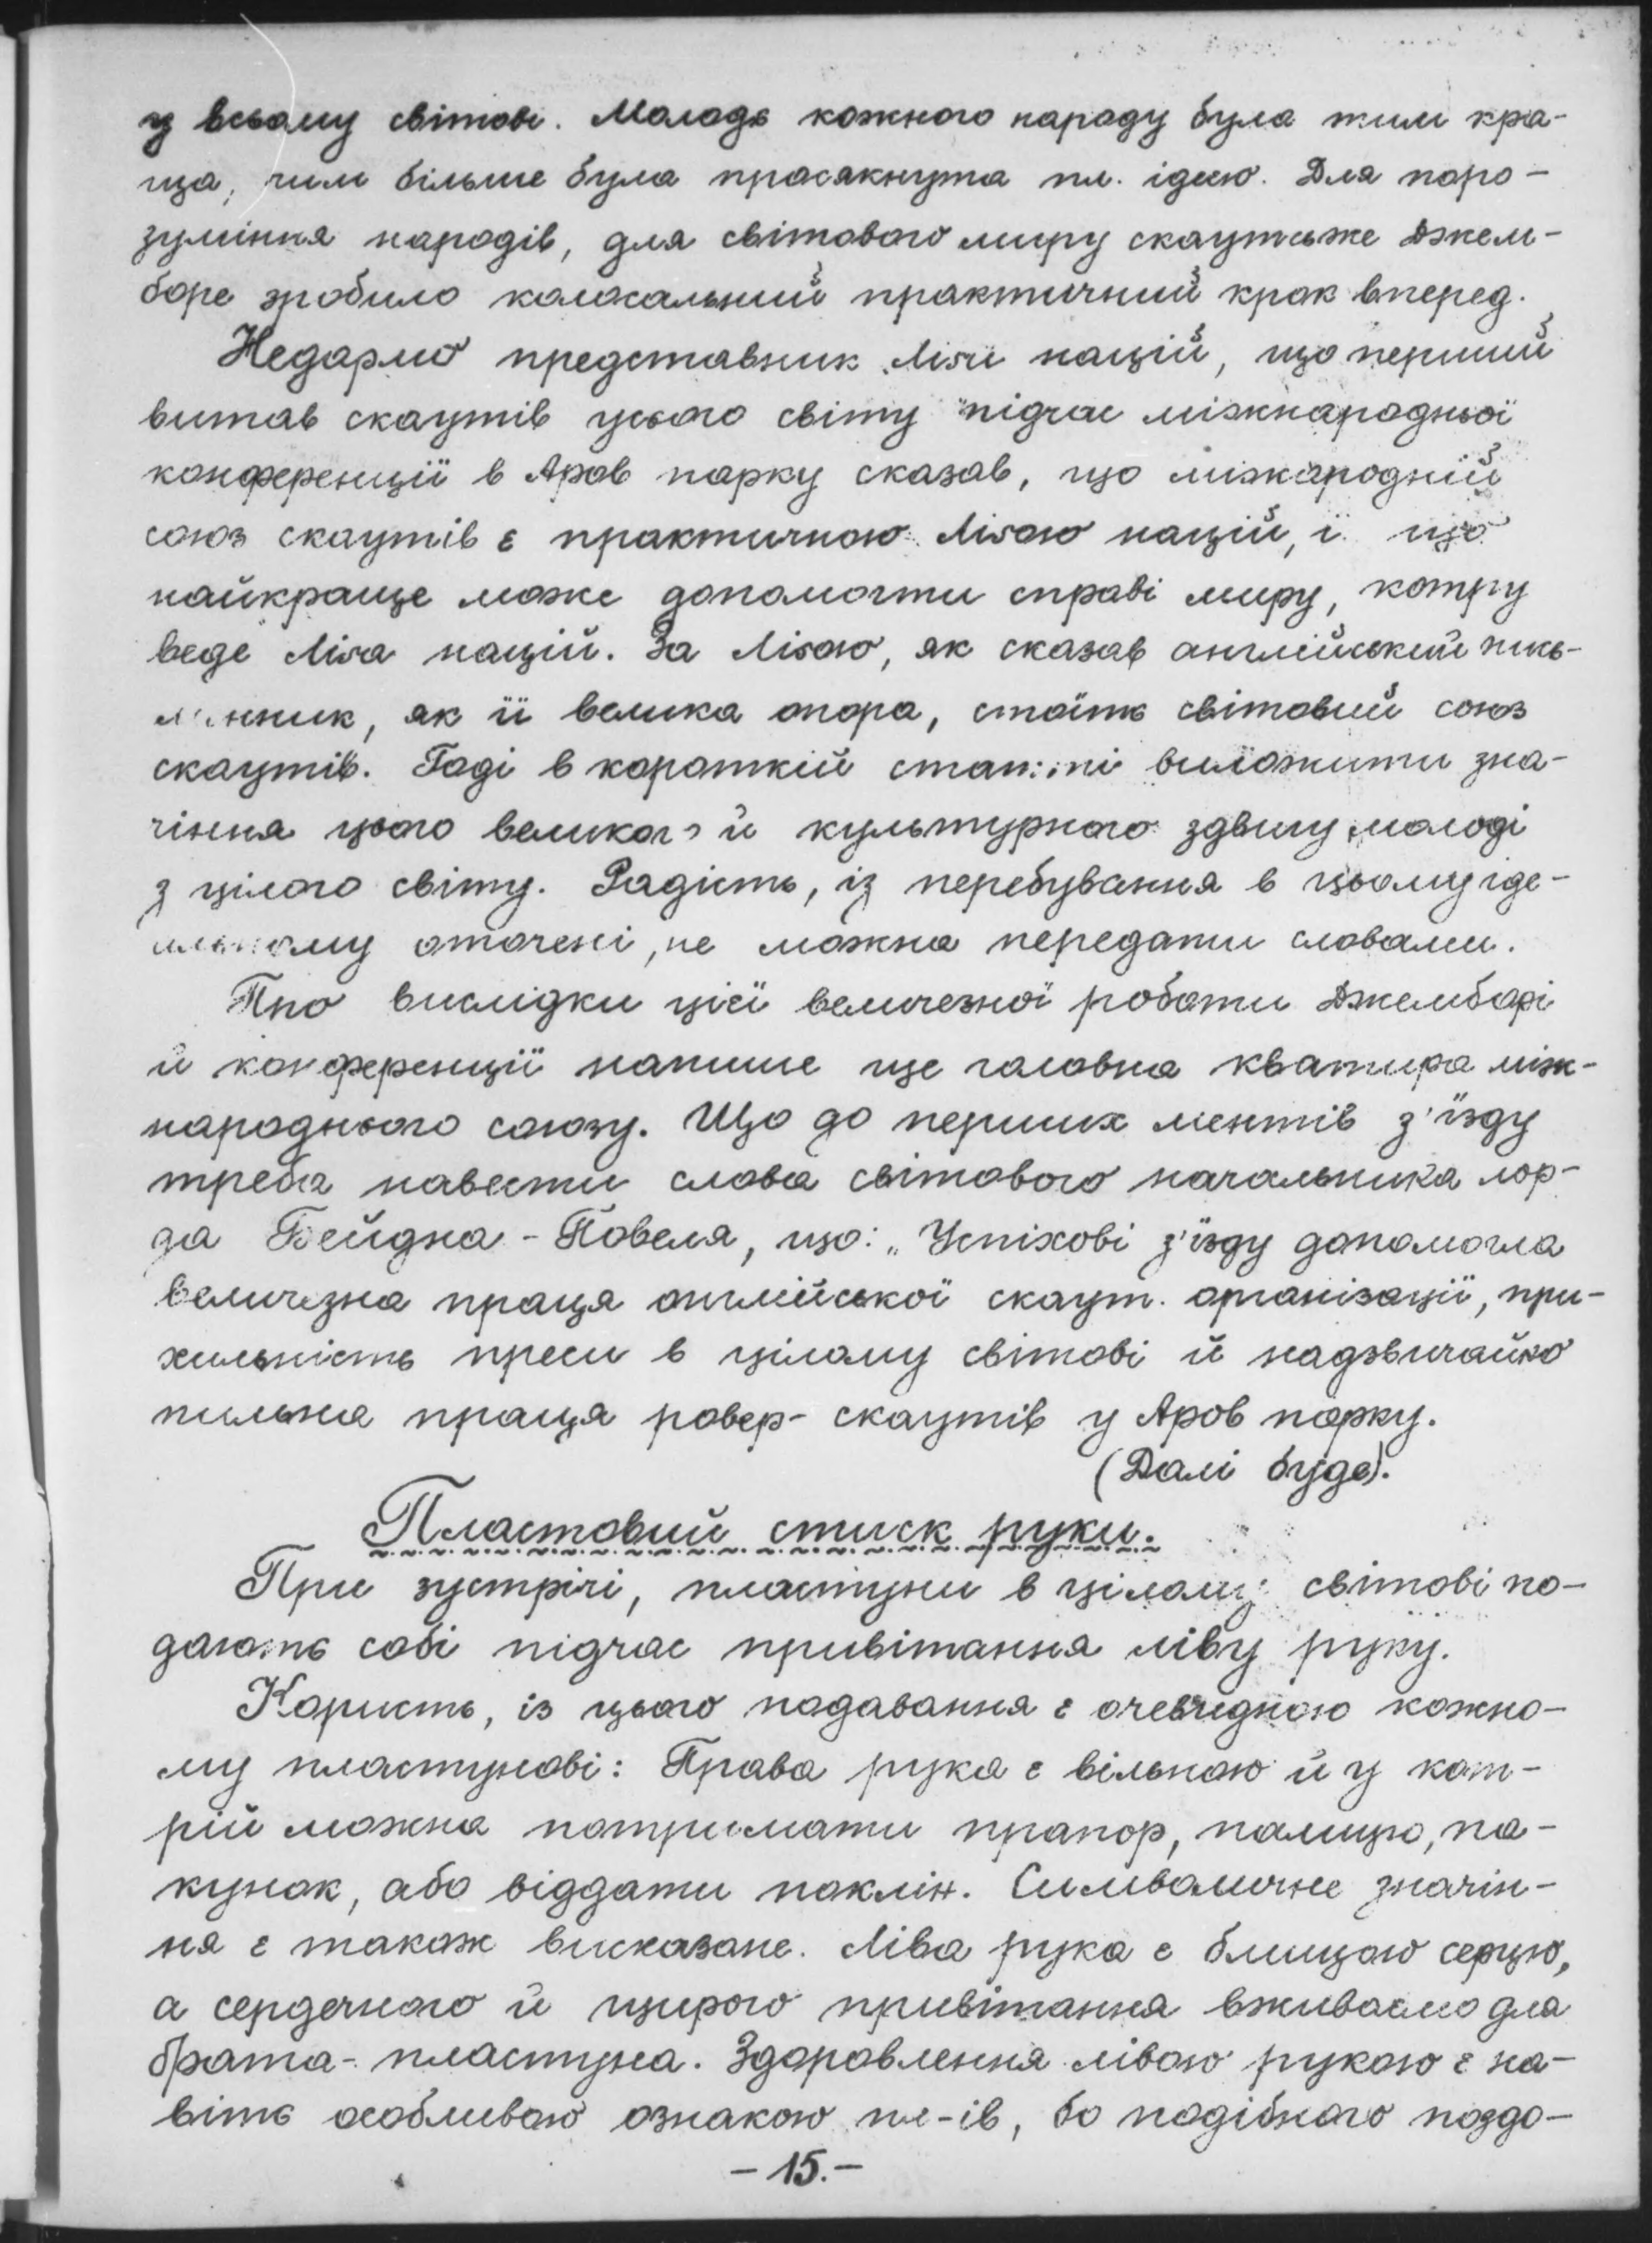 у всьому світові. Молодь кожного народу була тим кра-
ща, чим більше була просякнута пл. ідеєю. Для поро-
зуміння народів, для світового миру скаутське Джем-
боре зробило колосальний практичний крок вперед.
Недармо представник Ліги націй, що перший
витав скаутів усього світу підчас міжнародньої
конференції в Аров парку сказав, що міжнародній
союз скаутів є практичною Лігою націй, і що
найкраще може допомогти справі миру, котру
веде Ліга націй. За Лігою, як сказав англійський пись-
менник, як її велика опора, стоїть світовий союз
скаутів. Годі в короткій статті виложити зна-
чіння цього великого й культурного здвигу молоді
з цілого світу. Радість, із перебування в цьому іде-
альному оточені, не можна передати словами.
Про вислідки цієї величезної роботи Джемборі
й конференції напише ще головна кватира між-
народнього союзу. Що до перших ментів з'їзду
треба навести слова світового начальника лор-
да Бейдна - Повеля, що: „Успіхові з'їзду допомогла
величезна праця англійської скаут. організації, при-
хильність преси в цілому світові й надзвичайно
пильна праця ровер- скаутів у Аров парку.
(Далі буде).
Пластовий стиск руки.
При зустрічі, пластуни в цілому світові по-
дають собі підчас привітання ліву руку.
Користь, із цього подавання є очевидною кожно-
му пластунові: Права рука є вільною й у кот-
рій можна потримати прапор, палицю, па-
кунок, або віддати поклін. Символичне значін-
ня є також висказане. Ліва рука є блищою серцю,
а сердечного й щирого привітання вживаємо для
брата- пластуна. Здоровлення лівою рукою є на-
віть особливою ознакою пл-ів, бо подібного поздо-
- 15. -